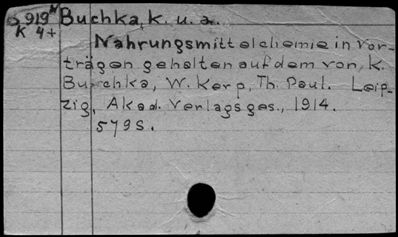 S 919 N Buchka, K. u. a.
K 4+
Nahrungsmittelchemie in Vor-
trägen gehalten auf dem von, K.
Buchka, W. Kerp, Th. Paul. Leip-
zig, Akad. Verlagsges., 1914.
579 S.